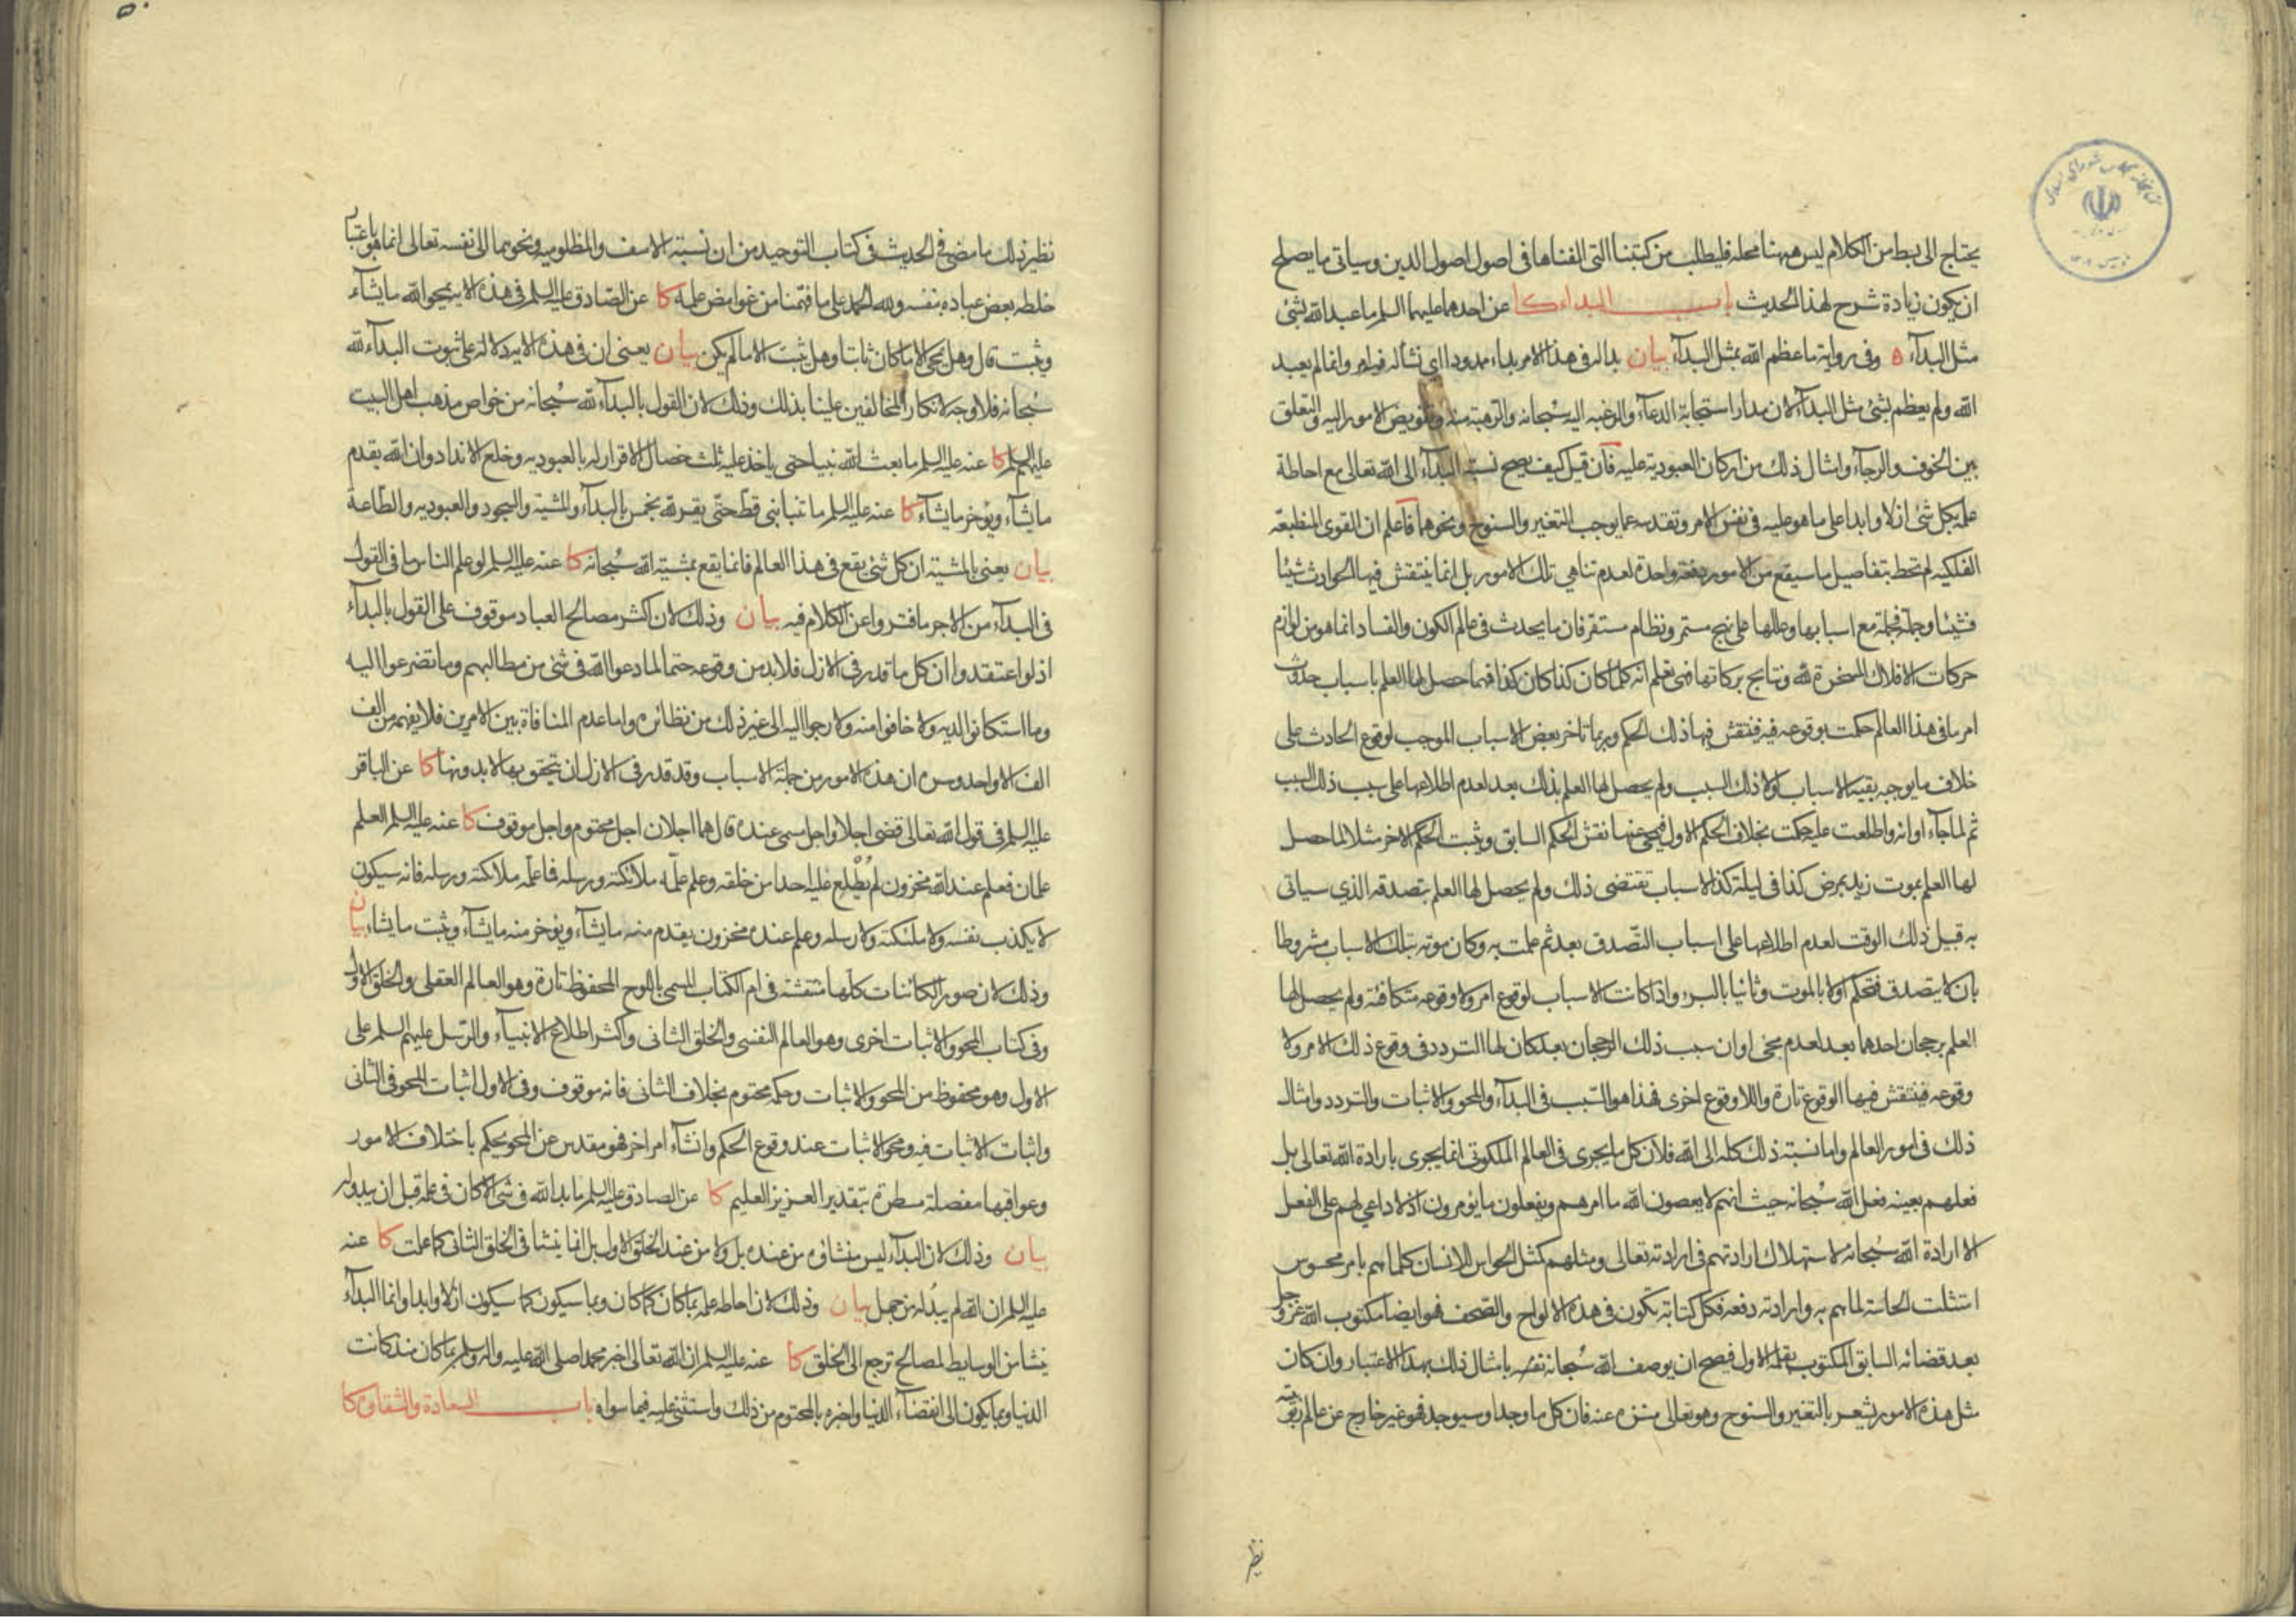 يحتاج الى بسط من الكلام ليس ههنا محله فليطلب من كتبنا التى الفناها فى اصول اصول الدين وسياتى ما يصلح
ان يكون زيادة شرح لهذا الحديث باب البداء كا عن احدهما عليهما السلم ما عبد الله بشئ
مثل البدآء ه وفى رواية ما عظم الله بمثل البدآء بيان بدا له فى هذا الامر بداء ممدودا اى نشأ له فيه امر وانما لم يعبد
الله ولم يعظم بشئ مثل البدآء لان مدار استجابة الدعآء والرغبه اليه سبحانه والرهبة منه وتفويض الامور اليه والتعلق
بين الخوف والرجآء وامثال ذلك من اركان العبودية عليه فان قيل كيف يصح نسبة البدآء الى الله تعالى مع احاطة
علمه بكل شئ ازلا وابدا على ما هو عليه فى نفس الامر وتقدسه عما يوجب التغير والسنوح ونحوهما فاعلم ان القوى المنطبعة
الفلكيه لم تحط بتفاصيل ما سيقع من الامور دفعة واحدة لعدم تناهى تلك الامور بل انما ينتقش فيها الحوادث شيئا
فشيئا وجملة فجملة مع اسبابها وعللها على نهج مستمر ونظام مستقر فان ما يحدث فى عالم الكون والفساد انما هو من لوازم
حركات الافلاك المسخرة لله ونتايج بركاتها فهى تعلم انه كلما كان كذا كان كذا فمهما حصل لها العلم باسباب حدوث
امر ما فى هذا العالم حكمت بوقوعه فيه فينتقش فيها ذلك الحكم وربما تاخر بعض الاسباب الموجب لوقوع الحادث على
خلاف ما يوجبه بقية الاسباب لولا ذلك السبب ولم يحصل لها العلم بذلك بعد لعدم اطلاعها على سبب ذلك السبب
ثم لما جآء اوانه واطلعت عليه حكمت بخلاف الحكم الاول فيمحى عنها نقش الحكم السابق ويثبت الحكم الاخر مثلا لما حصل
لها العلم بموت زيد بمرض كذا فى ليلة كذا لاسباب تقتضى ذلك ولم يحصل لها العلم بتصدقه الذي سياتى
به قبيل ذلك الوقت لعدم اطلاعها على اسباب التصدق بعد ثم علمت به وكان موته بتلك الاسباب مشروطا
بان لا يتصدق فتحكم اولا بالموت وثانيا بالبرء واذا كانت الاسباب لوقوع امر ولا وقوعه متكافئة ولم يحصل لها
العلم برجحان احدهما بعد لعدم مجئ اوان سبب ذلك الرجحان بعد كان لها التردد فى وقوع ذلك الامر ولا
وقوعه فينتقش فيها الوقوع تارة واللاوقوع اخرى فهذا هو السبب فى البدآء والمحو والاثبات والتردد وامثال
ذلك فى امور العالم واما نسبة ذلك كله الى الله فلان كل ما يجرى فى العالم الملكوتى انما يجرى بارادة الله تعالى بل
فعلهم بعينه فعل الله سبحانه حيث انهم لا يعصون الله ما امرهم ويفعلون ما يؤمرون اذ لا داعي لهم على الفعل
الا ارادة الله سبحانه لاستهلاك ارادتهم فى ارادته تعالى ومثلهم كمثل الحواس للانسان كلما هم بامر محسوس
امتثلت الحاسة لما هم به وارادته دفعه فكل كتابة تكون فى هذه الالواح والصحف فهو ايضا مكتوب الله عز وجل
بعد قضائه السابق المكتوب بقلمه الاول فيصح ان يوصف الله سبحانه نفسه بامثال ذلك بهذا الاعتبار وان كان
مثل هذه الامور يشعر بالتغير والسنوح وهو تعالى منزه عنه فان كل ما وجد او سيوجد فهو غير خارج عن عالم ربوبيته
نظير
نظير ذلك ما مضى فى الحديث فى كتاب التوحيد من ان نسبته الاسف والمظلوميه ونحوهما الى نفسه تعالى انما هو باعتبار
خلطه بعض عباده بنفسه ولله الحمد على ما فهمنا من غوامض علمه كا عن الصادق عليه السلم فى هذه الاية يمحو الله ما يشآء
ويثبت قال وهل يمحى الا ما كان ثابتا وهل يثبت الا ما لم يكن بيان يعنى ان فى هذه الاية دلالة على ثبوت البدآء لله
سبحانه فلا وجه لانكار المخالفين علينا بذلك وذلك لان القول بالبدآء لله سبحانه من خواص مذهب اهل البيت
عليهم السلم كا عنه عليه السلم ما بعث الله نبيا حتى ياخذ عليه ثلث خصال الاقرار له بالعبوديه وخلع الانداد وان الله يقدم
ما يشآء ويؤخر ما يشآء كا عنه عليه السلم ما تنبا نبى قط حتى يقر لله بخمس بالبدآء والمشية والسجود والعبوديه والطاعة
بيان يعنى بالمشية ان كل شئ يقع فى هذا العالم فانما يقع بمشية الله سبحانه كا عنه عليه السلم لو علم الناس ما فى القول
فى البدآء من الاجر ما فتروا عن الكلام فيه بيان وذلك لان اكثر مصالح العباد موقوف على القول بالبدآء
اذ لو اعتقدوا ان كل ما قدر فى الازل فلا بد من وقوعه حتما لما دعوا الله فى شئ من مطالبهم وما تضرعوا اليه
وما استكانوا لديه ولا خافوا منه ولا رجوا اليه الى غير ذلك من نظائره واما عدم المنافاة بين الامرين فلا يفهمه من الف
الف الا واحد وسره ان هذه الامور من جملة الاسباب وقد قدر فى الازل ان يتحقق بها لا بدونها كا عن الباقر
عليه السلم فى قول الله تعالى قضى اجلا واجل مسمى عنده قال هما اجلان اجل محتوم واجل موقوف كا عنه عليه السلم العلم
علمان فعلم عند الله مخزون لم يطلع عليه احدا من خلقه وعلم علمه ملائكته ورسله فما علمه ملائكته ورسله فانه سيكون
لا يكذب نفسه ولا ملئكته ولا رسله وعلم عنده مخزون يقدم منه ما يشآء ويؤخر منه ما يشآء ويثبت ما يشاء بيان
وذلك لان صور الكائنات كلها منتقشة فى ام الكتاب المسمى باللوح المحفوظ تارة وهو العالم العقلى والخلق الاول
وفى كتاب المحو والاثبات اخرى وهو العالم النفسى والخلق الثانى واكثر اطلاع الانبيآء والرسل عليهم السلم على
الاول وهو محفوظ من المحو والاثبات وحكمه محتوم بخلاف الثانى فانه موقوف وفى الاول اثبات المحو فى الثانى
واثبات الاثبات فيه ومحو الاثبات عند وقوع الحكم وانشآء امر اخر فهو مقدس عن المحو يحكم باختلاف الامور
وعواقبها مفصلة مسطرة بتقدير العزيز العليم كا عن الصادق عليه السلم ما بدا لله فى شئ الا كان فى علمه قبل ان يبدو له
بيان وذلك لان البدآء ليس منشاؤه من عنده بل ولا من عند الخلق الاول بل انما ينشا فى الخلق الثانى كما علمت كا عنه
عليه السلم ان الله لم يبد له من جهل بيان وذلك لان احاطه علمه بما كان كما كان وبما سيكون كما سيكون ازلا وابدا وانما البدآء
ينشا من الوسايط لمصالح ترجع الى الخلق كا عنه عليه السلم ان الله تعالى اخبر محمدا صلى الله عليه واله وسلم بما كان منذ كانت
الدنيا وبما يكون الى انقضآء الدنيا واخبره بالمحتوم من ذلك واستثنى عليه فيما سواه باب السعادة والشقاوة كا